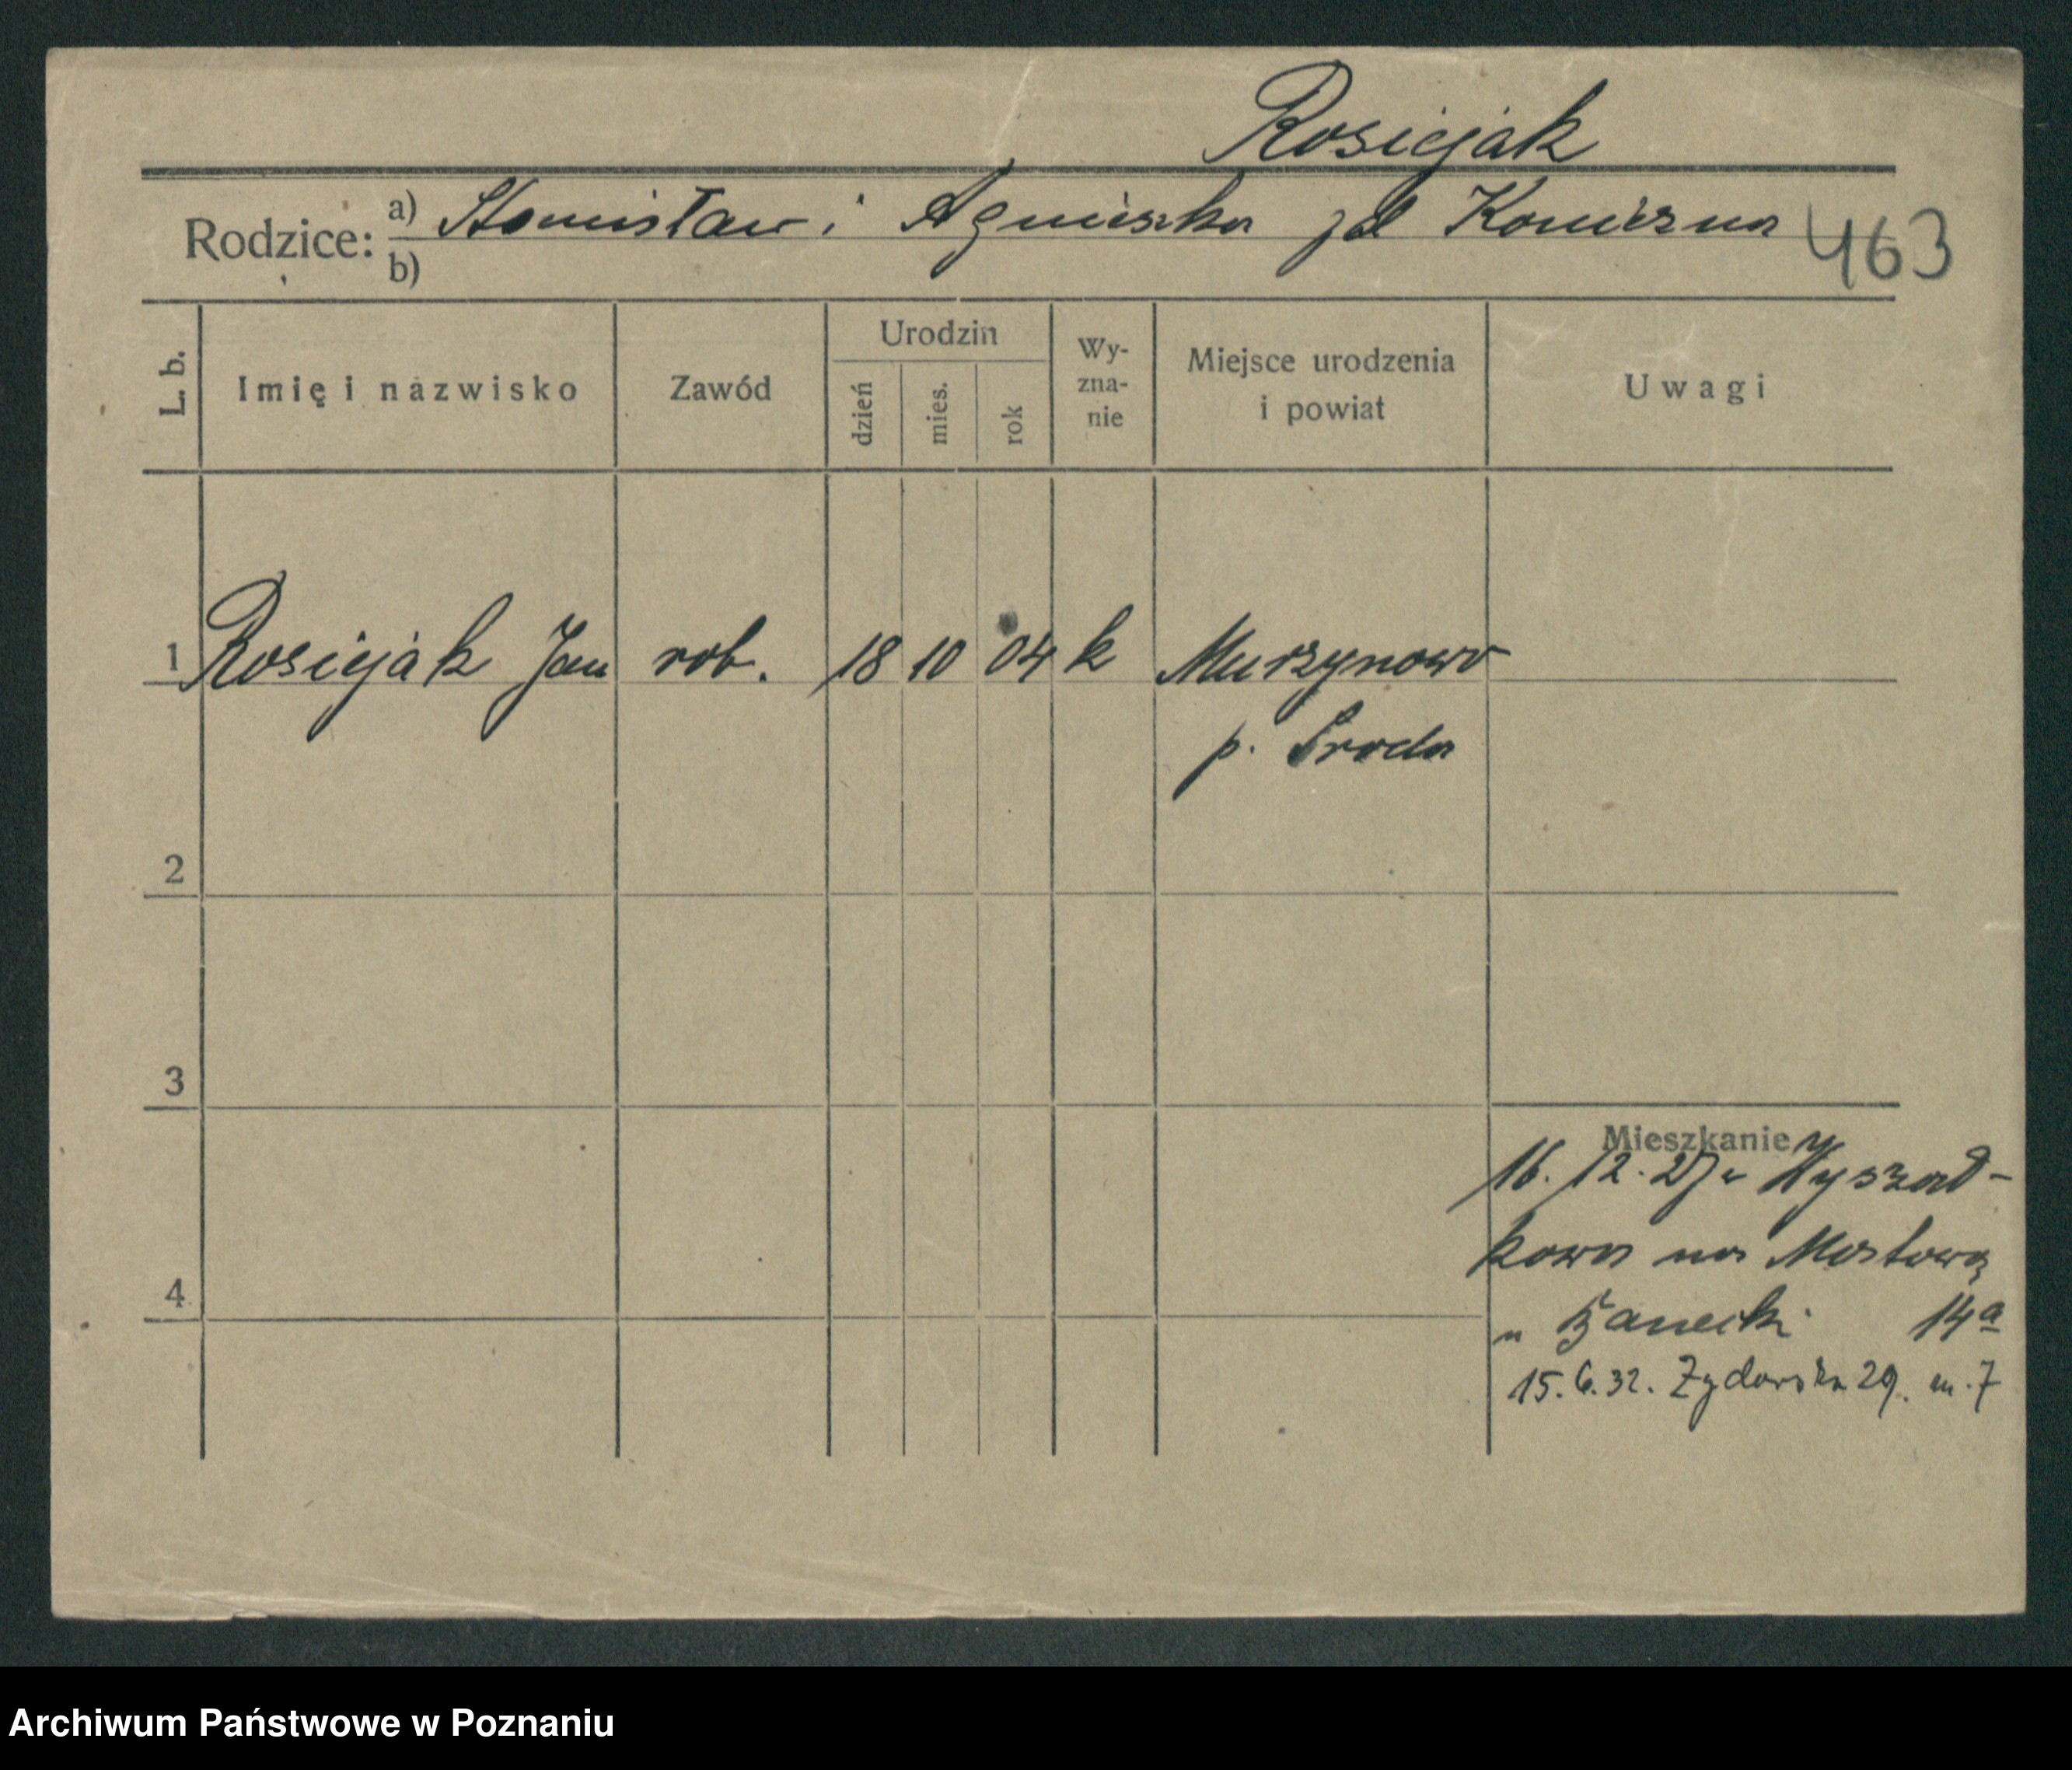 Rosiejak
Rodzice: a) Stanisław i Agnieszka zd Konieczna
b)
463
L. b.
Imię i nazwisko
Zawód
Urodzin
dzień
mies.
rok
Wy-
zna-
nie
Miejsce urodzenia
i powiat
Uwagi
1 Rosiejak Jan rob. 18 10 04 k Murzynowo
p. Środa
2
3
4
Mieszkanie
16. 12. 27
kowa na Mostową
14a
15. 6. 32. 29. m. 7
Archiwum Państwowe w Poznaniu